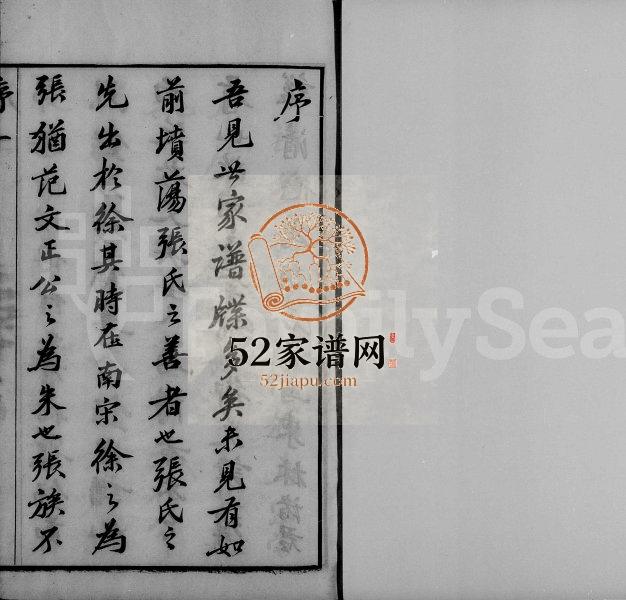 序
吾見世家譜牒多矣未見有如
前墳蕩張氏之善者也張氏之
先出於徐其時在南宋徐之為
張猶范文正公之為朱也張族不
序一
52家谱网
52jiapu.com
FamilySea